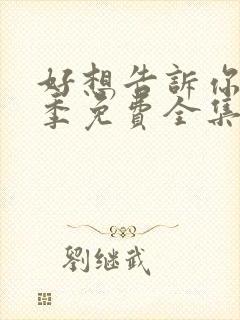 好想告訴你
季免費全集
劉继武